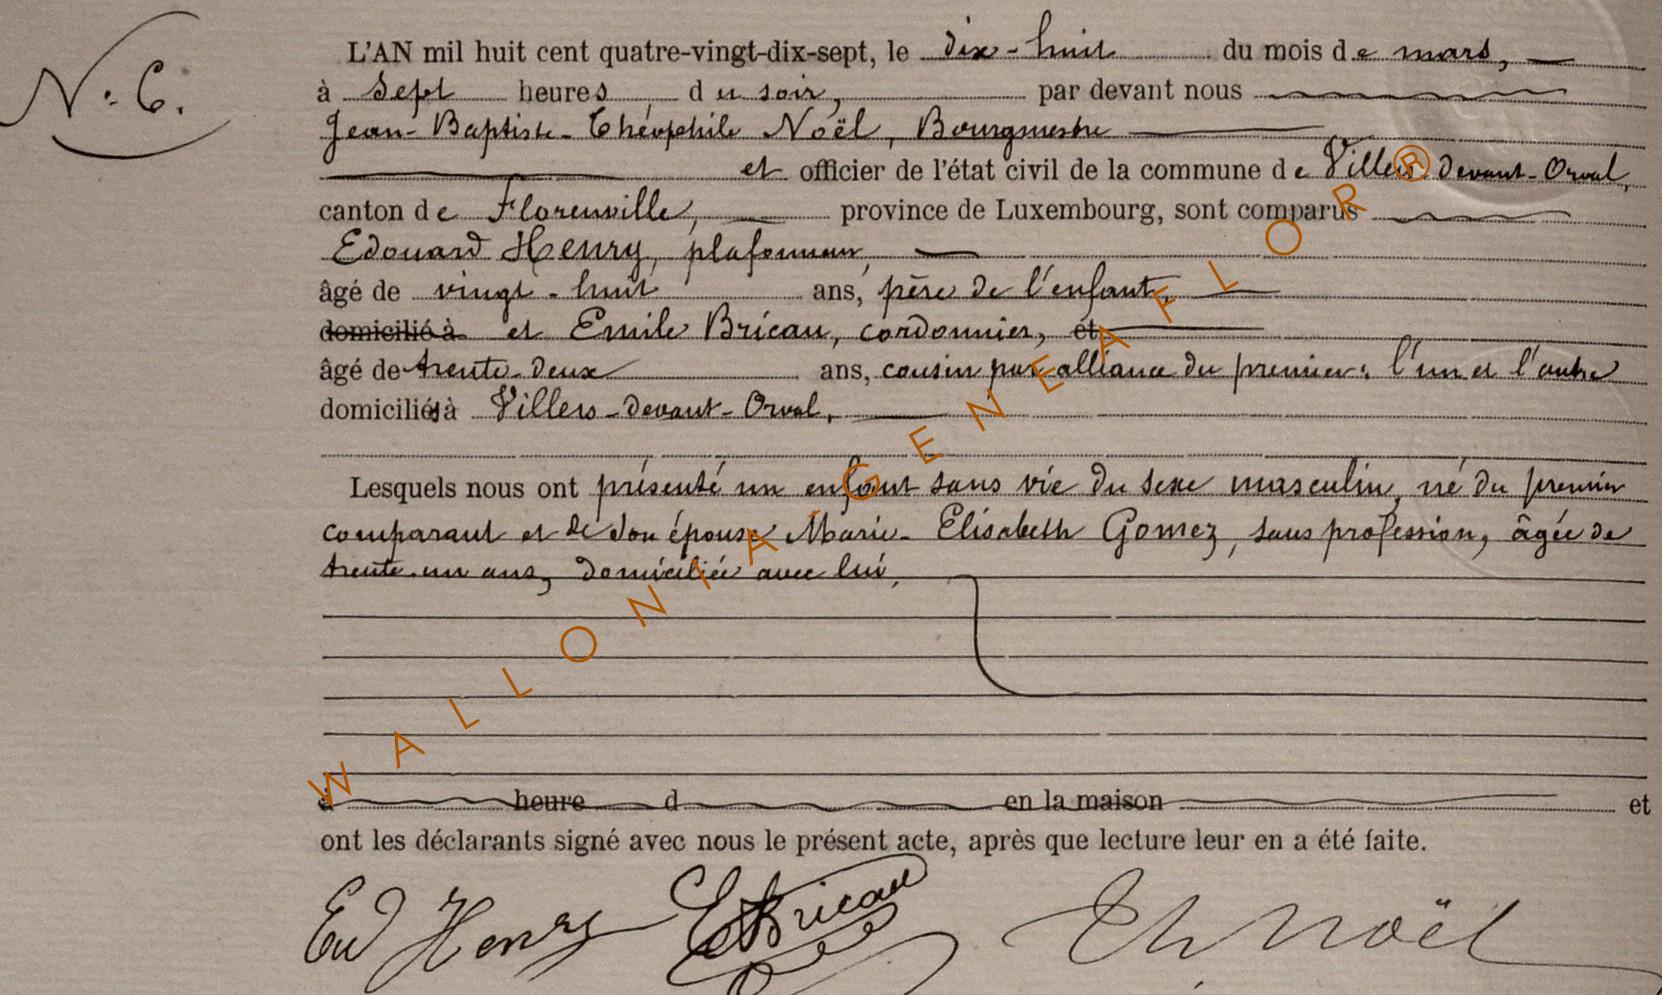 N.º 6.
L'AN mil huit cent quatre-vingt-dix-sept, le dix-huit du mois de mars,
à sept heures du soir, par devant nous
Jean-Baptiste-Théophile Noël, Bourgmestre
et officier de l'état civil de la commune de Villers-devant-Orval,
canton de Florenville, province de Luxembourg, sont comparus
Edouard Henry, plafonneur,
âgé de vingt-huit ans, père de l'enfant,
domicilié à et Emile Bricau, cordonnier, et
âgé de trente-deux ans, cousin par alliance du premier; l'un et l'autre
domiciliés à Villers-devant-Orval,
Lesquels nous ont présenté un enfant sans vie du sexe masculin, né du premier
comparant et de son épouse Marie-Elisabeth Gomez, sans profession, âgée de
trente-un ans, domiciliée avec lui,
à heure d en la maison et
ont les déclarants signé avec nous le présent acte, après que lecture leur en a été faite.
Ed Henry E Bricau Th Noël
WALLONIA-GENEAFLOR®